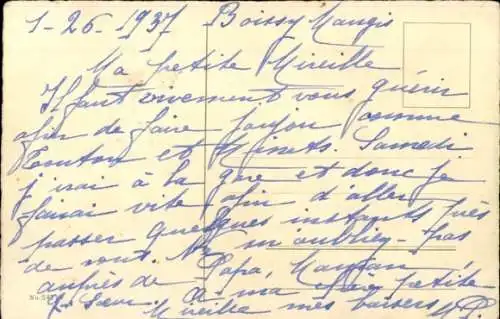 1-26-1937 Boissy Maugis
Ma petite Mireille
Il faut vivement vous guérir
afin de faire joujou comme
Tonton et Minets. Samedi
j'irai à la gare et donc je
ferai vite afin d'aller
passer quelques instants près
de vous. Ne m'oubliez-pas
auprès de Papa, Maman,
p. Sœur. A ma chère petite
Mireille mes baisers
No. 545